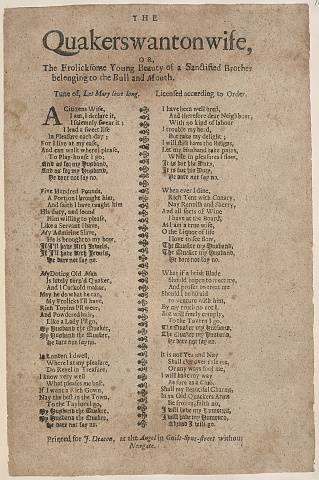 THE
Quakers wanton wife,
OR,
The Frolicksome Young Beauty of a Sanctified Brother
belonging to the Bull and Mouth.
Tune of, Let Mary live long. Licensed according to Order.
A Citizens Wife,
I am, I declare it,
I solemnly swear it;
I lead a sweet life
In Pleasure each day;
For I live at my ease,
And can walk where I please,
To Play-house I go;
And as for my Husband,
And as for my Husband,
He dare not say no.
Five Hundred Pounds,
A Portion I brought him,
And since I have taught him
His duty, and found
Him willing to please,
Like a Servant I have,
My Adamire Slave,
He is brought to my bow,
If I'll have Rich Jewels,
If I'll have Rich Jewels,
He dare not say no.
My Doting Old Man
Is lately turn'd Quaker,
And I Cuckold maker,
May be do what he can,
My Frolicks I'll have,
Rich Topins I'll wear,
And Powdered hair,
Like a Lady I'll go,
My Husband the Quaker,
My Husband the Quaker,
He dare not say no.
In London I dwell,
Where I at my pleasure,
Do Revel in Treasure,
I know very well
What pleases me best,
If I want a Rich Gown,
Nay the best in the Town,
To the Taylor I go,
My Husband the Quaker,
My Husband the Quaker,
He dare not say no.
I have been well bred,
And therefore dear Neighbour,
With no kind of labour
I trouble my head,
But take my delight;
I will still have the Reigns,
Let my Husband take pains,
While in pleasures I flow,
It is but his Duty,
It is but his Duty,
He dare not say no.
When ever I dine,
Rich Tent with Canary,
Nay Rennish and Sherry,
And all sorts of Wine
I have at the Board,
As I am a true wife,
O the Liquor of life
I love to see flow,
The Quaker my Husband,
The Quaker my Husband,
He dare not say no.
What if a brisk Blade
Should
And proffer to
Should he
to venture with him,
By my truth and
But will freely comply,
To the Tavern I go,
The Quaker my Husband,
The Quaker my Husband,
He dare not say no.
It is not Yea and Nay
Shall ever over rule me,
Or any ways fool me,
I will have my way
As sure as a Gun.
Shall my Beautiful Charms,
In an Old Quakers Arms
Be frozen, faith no,
I will have my Humours,
I will have my Humours,
Abroad I will go.
Printed for J. Deacon, at the Angel in Guilt-Spur-street without
Newgate.